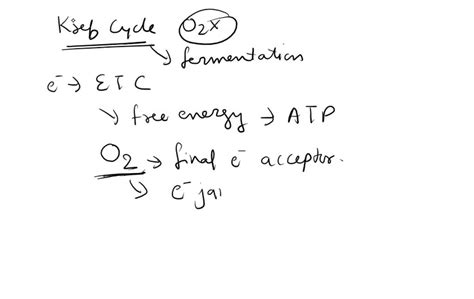 Kreb Cycle O2X
→ fermentation
e⁻ → ETC
→ free energy → ATP
O2 → final e⁻ acceptor.
→ e⁻ ja